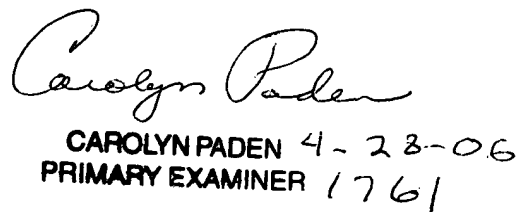 Carolyn Paden
CAROLYN PADEN 4-28-06
PRIMARY EXAMINER 1761